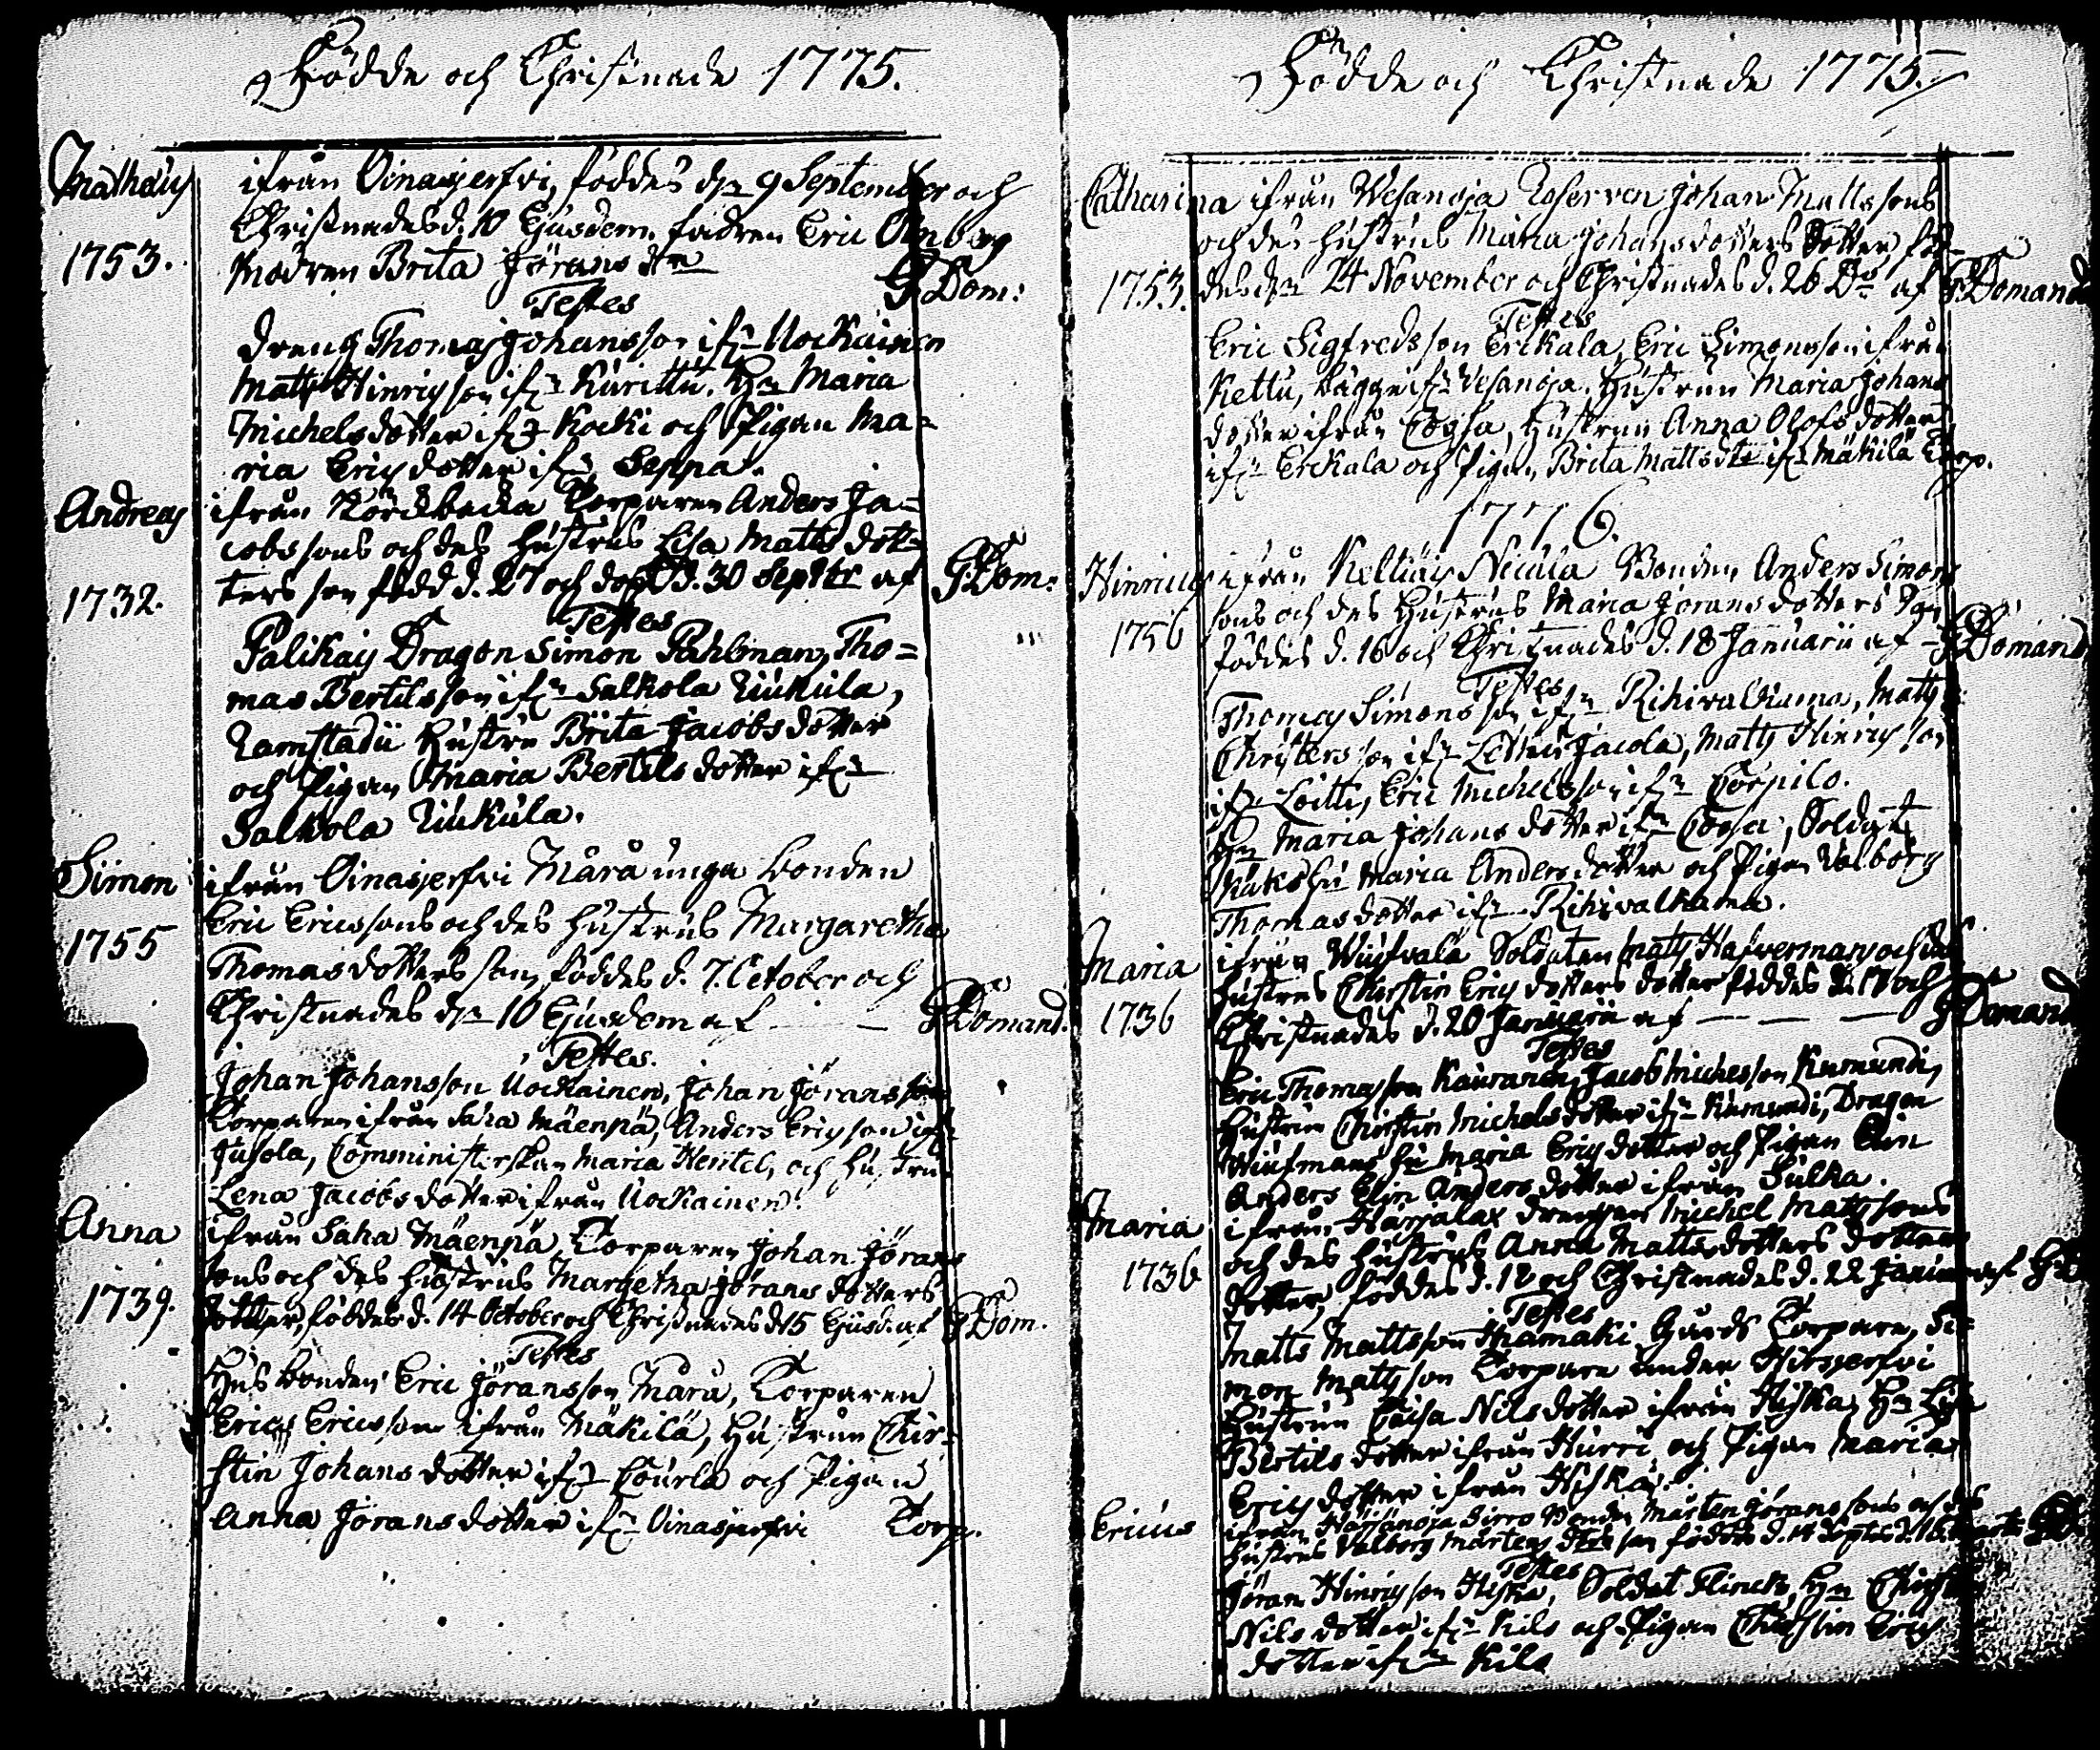 Födde och Christnade 1775.
Mathaus ifrån Oinasjerfvi, föddes dn 9 September och
Christnades d. 10 Ejusdem. fadren Eric
1753. Modren Brita Jörans dtr G. Dom:
Testes
Dreng Thomas Johansson ifrn Uockainen
Matts Hinricsson ifrn Kurittu. Hn Maria
Michelsdotter ifrn Kocki och Pigan Ma=
ria Ericsdotter ifrn Seppä.
Andreas ifrån Torparen Anders Ja=
cobssons och des Hustrus Lisa Matts dot=
1732. ters son född d. 27 och döpt d. 30 Septbr af G. Dom:
Testes
Palikais Dragon Simon Pahlman, Tho=
mas Bertilsson ifrn Salkola Uukula,
Hustru Brita Jacobsdotter
och Pigan Maria Bertilsdotter ifrn
Salkola Uukula.
Simon ifrån Oinasjerfvi Mårå unga bonden
Eric Ericssons och des Hustrus Margaretha
1755 Thomasdotters son, föddes d. 7. October och
Christnades dn 10 Ejusdem af G. Domand.
Testes.
Johan Johansson Uockainen, Johan Jöransson
Torparen ifrån Saha Mäenpä, Anders Ericsson ifrn
Jusola, Comministerskan Maria Hentel, och Hustru
Lena Jacobsdotter ifrån Uockainen.
Anna ifrån Saha Mäenpä Torparen Johan Jörans
sons och des Hustrus Margetha Jörans dotters
1739. dotter, föddes d. 14 October och Christnades d. 15 Ejusd. af G. Dom.
Testes
Husbonden Eric Jöransson Mårå, Torparen
Erics Ericsson ifrån Mäkilä, Hustrun Chir=
stin Johansdotter ifrn Courla och Pigan
Anna Jöransdotter ifrn Oinasjerfvi Torp.
Födde och Christnade 1775.
Catharina ifrån Wesanoja Johan Mattssons
och des Hustrus Maria Johansdotters Dotter föd-
1753. des dn 24 November och Christnades d. 26 Do af G. Domand
Testes
Eric Sigfredsson Erckala, Eric Simonsson ifrån
Kettu, bägge ifrn Vesanoja. Hustrun Maria Johans
dotter ifrån Cogsa, Hustrun Anna Olofsdotter
ifrn Erckala och Pigan Brita Matts dtr ifrn Mäkilä Torp.
1776.
Hinricus ifrån Nicula Bonden Anders Simons
sons och des Hustrus Maria Jöransdotters son
1756 föddes d. 16 och Christnades d. 18 Januarii af G. Domand
Testes
Thomas Simonsson ifrn Rihivalkama, Matts
Christersson ifrn Jacola, Matts Hinricsson
ifrn Loitti, Eric Michelsson ifrn Corpilo.
Hn Maria Johansdotter ifrn Cogsa, Soldat
hu Maria Andersdotter och Pigan Valborg
Thomasdotter ifrn Rihivalkama.
Maria ifrån Soldaten Matts Hafverman och des
Hustrus Chirstin Ericsdotters dotter föddes d. 17 och
1736 Christnades d. 20 Januarii af G. Domand
Testes
Eric Thomasson Kauranen, Jacob Michelsson Kumundi,
Hustrun Chirstin Michelsdotter ifrn Kumundi, Dragon
hu Maria Ericsdotter och Pigan Elin
Anders Elin Andersdotter ifrån Sulka.
Maria ifrån Harjalax drengen Michel Mattssons
och des Hustrus Anna Mattsdotters dotter
1736 dotter, föddes d. 18 och Christnades d. 22 Januarii af G. D
Testes
Matts Mattsson Gårds Torpare, Si=
mon Mattsson Torpare under Hirsjerfvi
Hustrun Caisa Nilsdotter ifrån Hiska, Hn Lisa
Bertilsdotter ifrån Hurri och Pigan Maria
Ericsdotter ifrån Hiska.
Ericus ifrån Sirro Bonden Mårten Jöranssons och des
Hustrus Valborg Mårtens dtrs son föddes d. 14
Testes
Jöran Hinricsson Hiska, Soldat Flinck, Hn Chirstin
Nilsdotter ifrn Kilo och Pigan Chirstin Erics
dotter ifrn Kilo